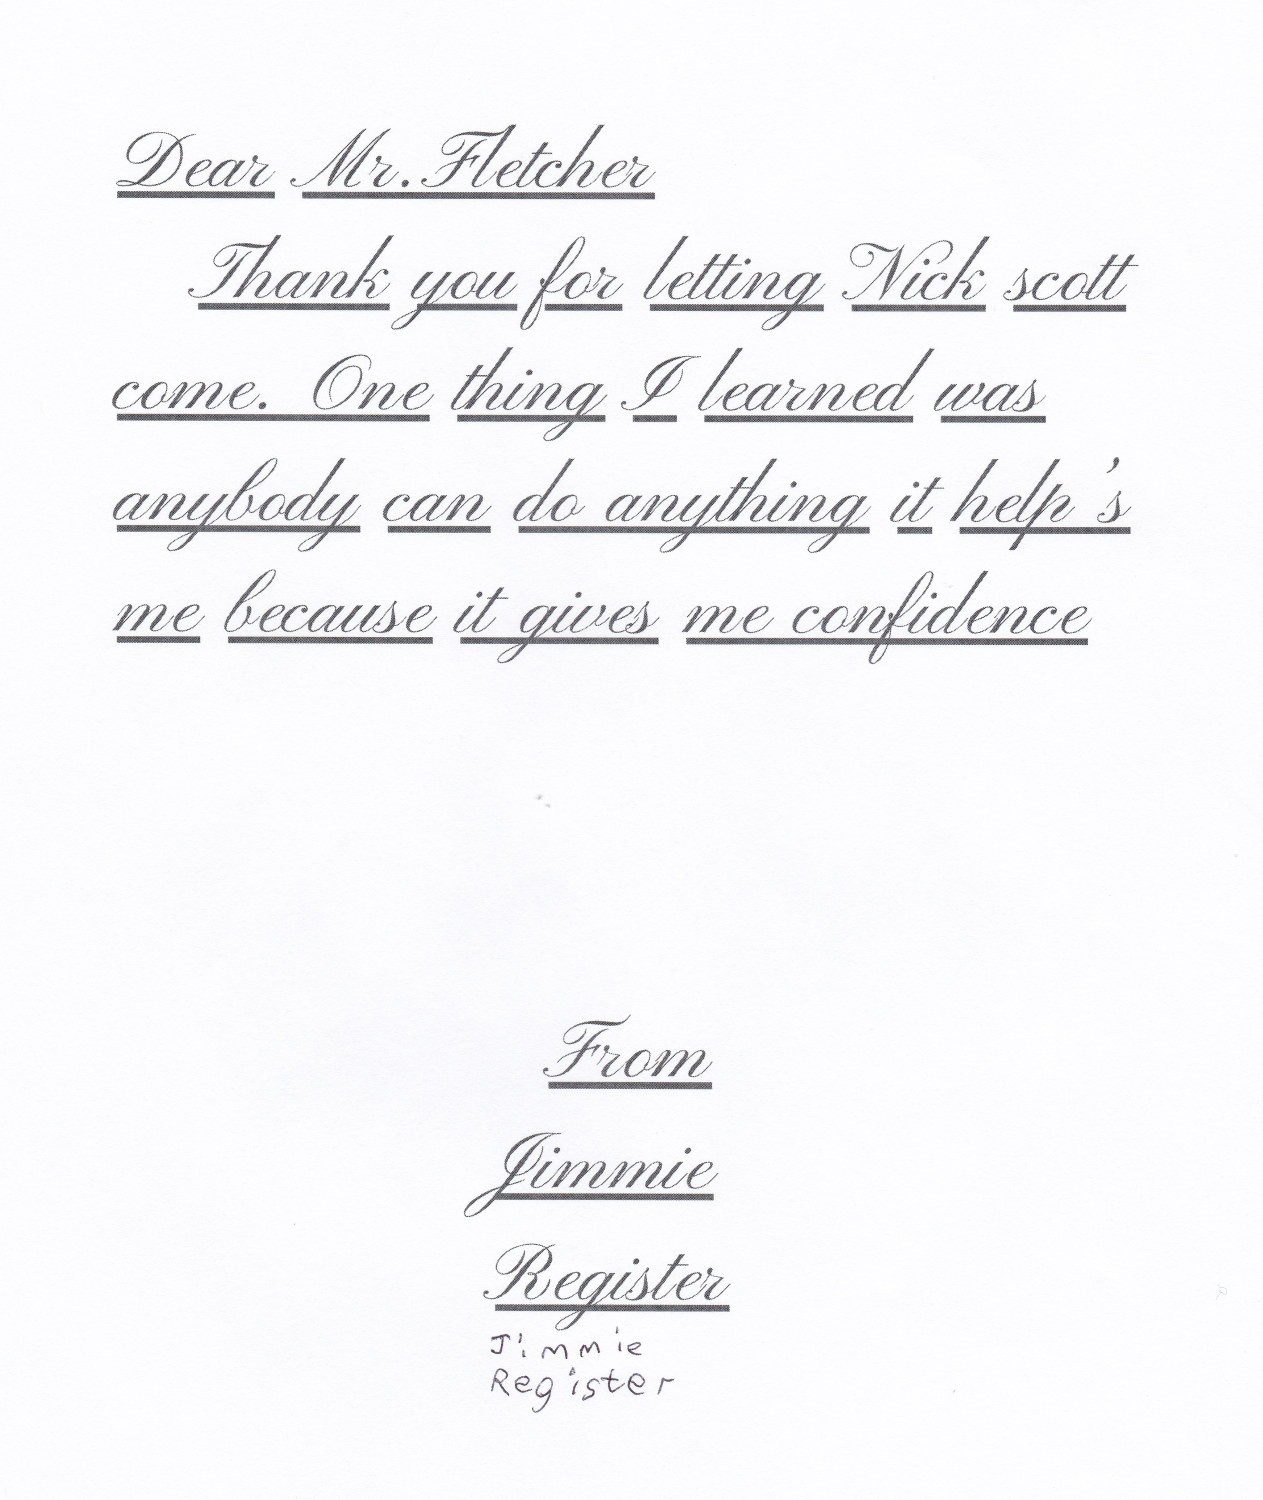 Dear Mr. Fletcher
Thank you for letting Nick scott
come. One thing I learned was
anybody can do anything it help's
me because it gives me confidence
From
Jimmie
Register
Jimmie
Register